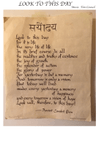 LOOK TO THIS DAY
सूर्योदय
Look to this day
for it is life
the very life of life
In its brief course lie all
the realities and truths of existence
the joy of growth
the splendor of action
the glory of power
For yesterday is but a memory
And tomorrow is only a vision
But today well lived
makes every yesterday a memory
of happiness
and every tomorrow a vision of hope
Look well, therefore, to this day!